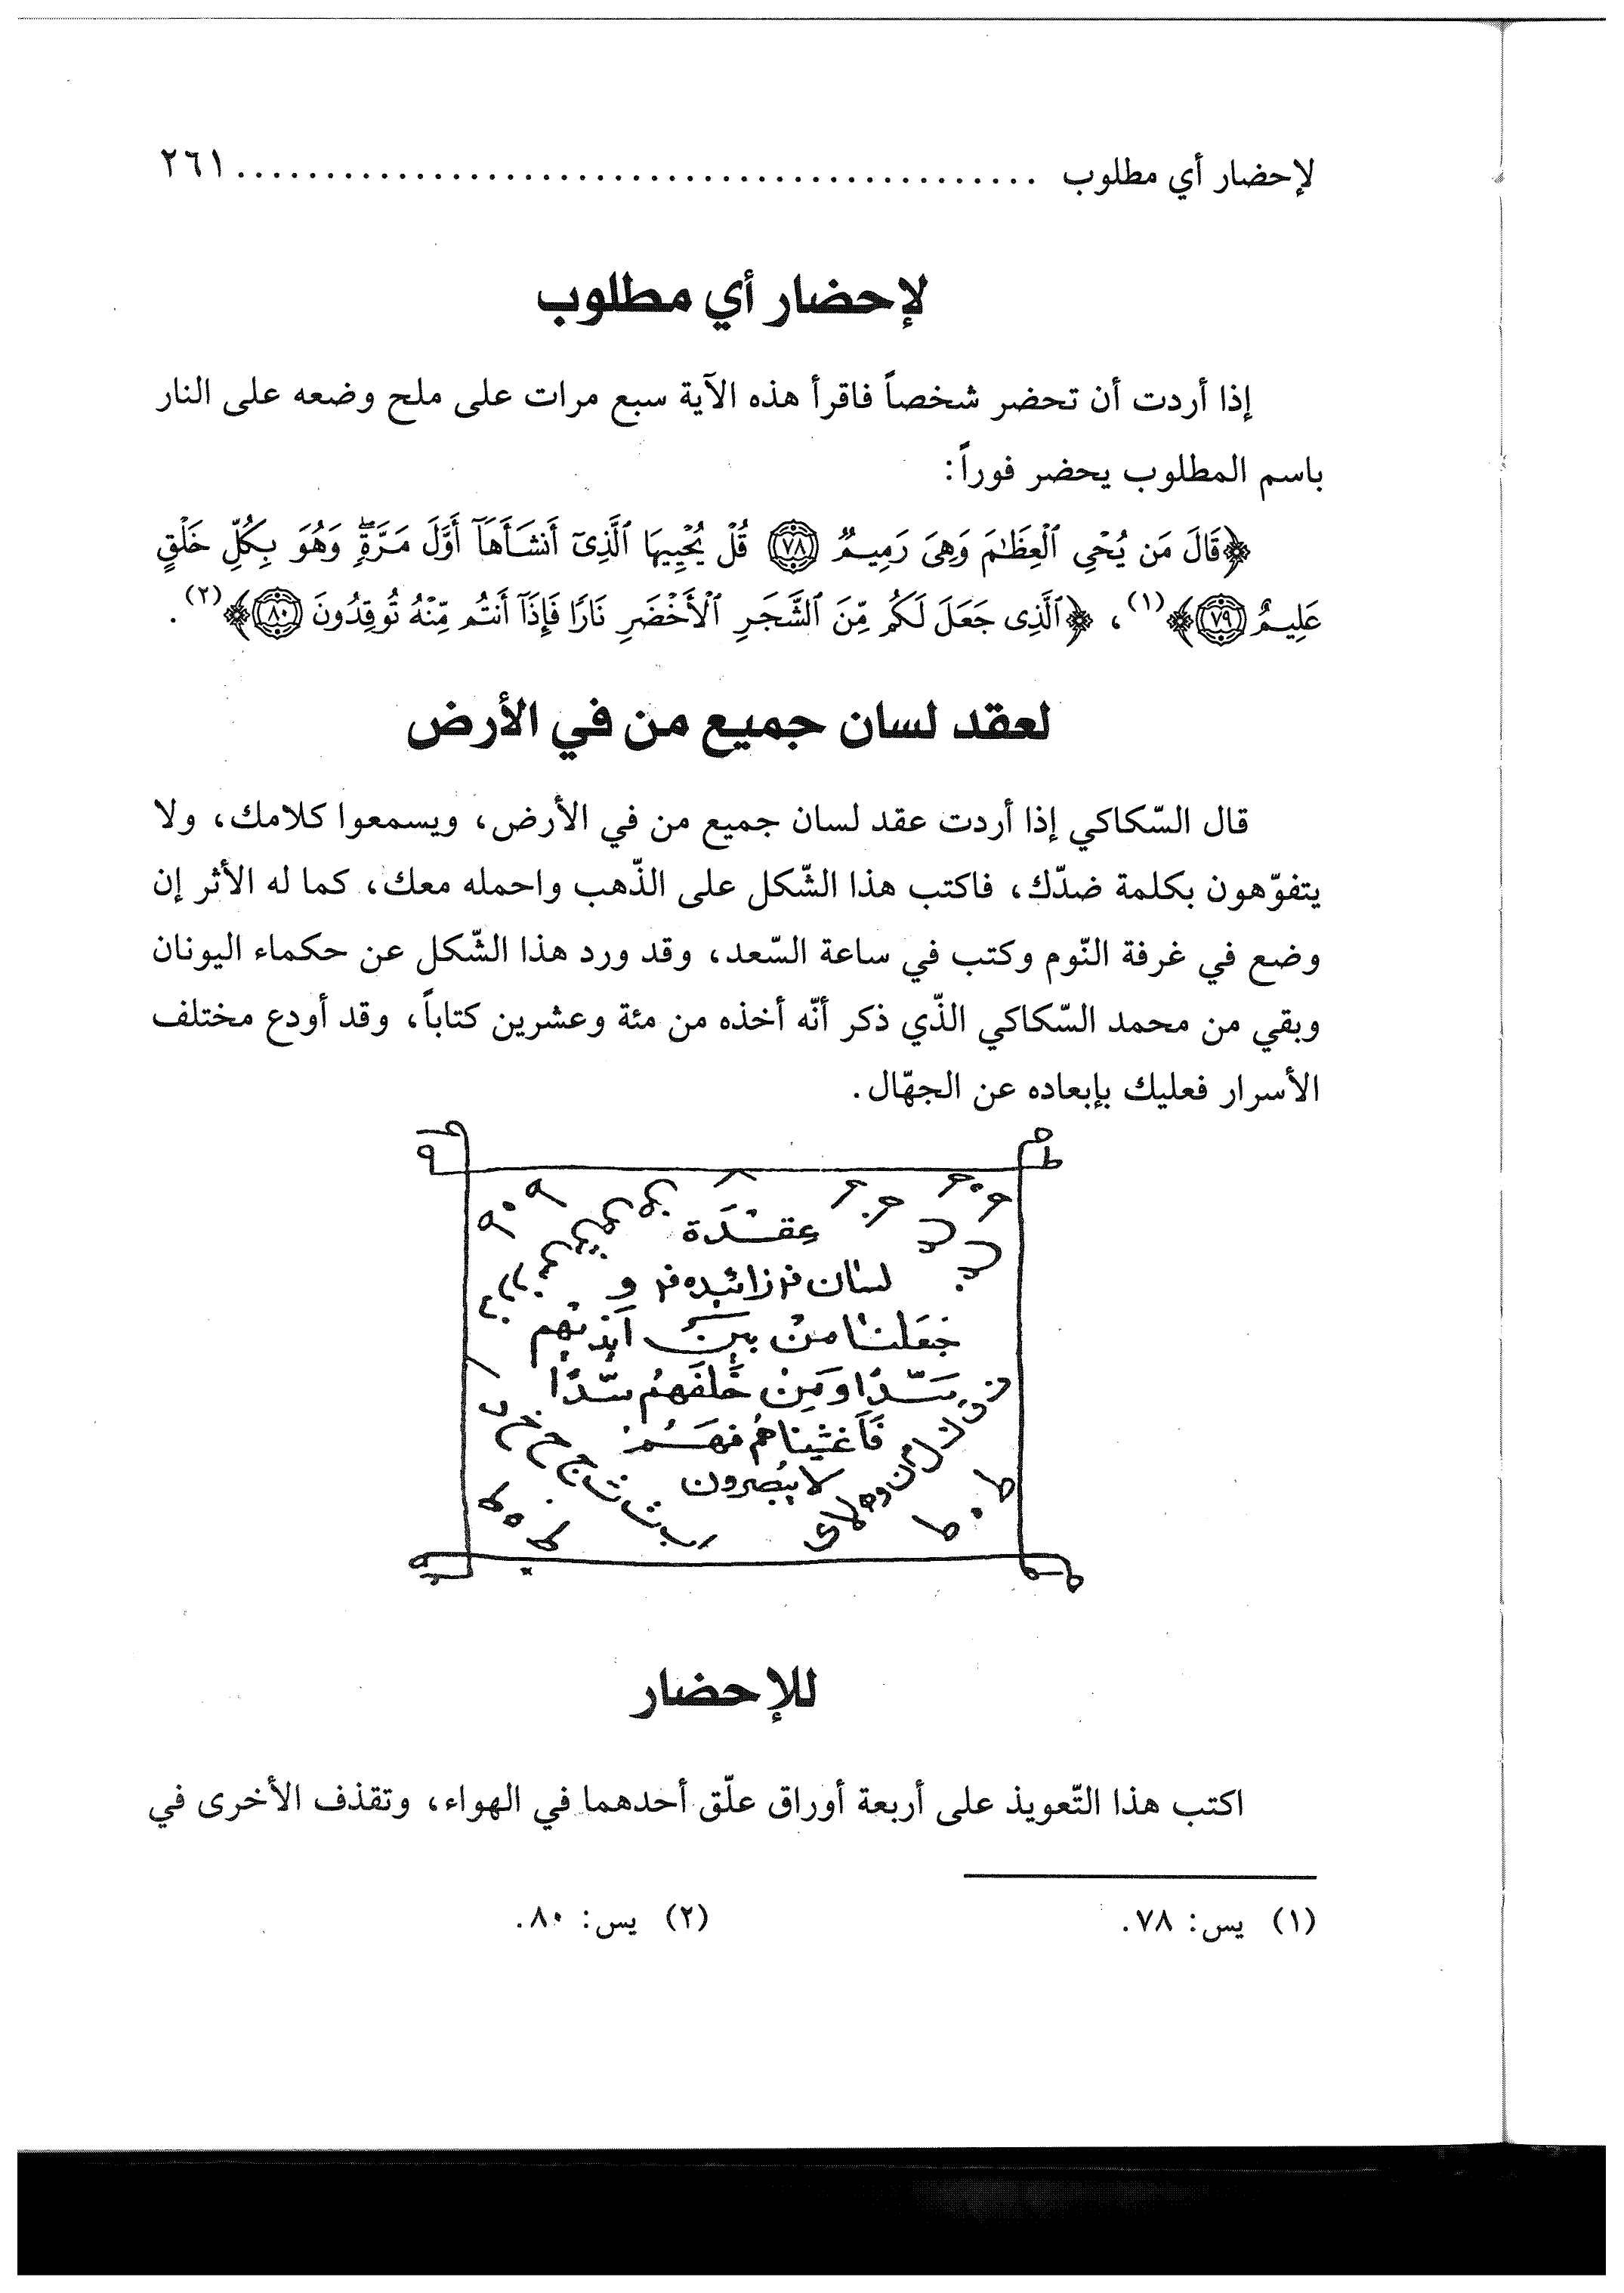 لإحضار أي مطلوب .............................................. ٢٦١
لإحضار أي مطلوب
إذا أردت أن تحضر شخصاً فاقرأ هذه الآية سبع مرات على ملح وضعه على النار
باسم المطلوب يحضر فوراً:
﴿قَالَ مَن يُحْيِ ٱلْعِظَٰمَ وَهِيَ رَمِيمٌ ٧٨ قُلْ يُحْيِيهَا ٱلَّذِيٓ أَنشَأَهَآ أَوَّلَ مَرَّةٍۖ وَهُوَ بِكُلِّ خَلْقٍ
عَلِيمٌ ٧٩﴾(١)، ﴿ٱلَّذِي جَعَلَ لَكُم مِّنَ ٱلشَّجَرِ ٱلْأَخْضَرِ نَارًا فَإِذَآ أَنتُم مِّنْهُ تُوقِدُونَ ٨٠﴾(٢).
لعقد لسان جميع من في الأرض
قال السّكاكي إذا أردت عقد لسان جميع من في الأرض، ويسمعوا كلامك، ولا
يتفوّهون بكلمة ضدّك، فاكتب هذا الشّكل على الذّهب واحمله معك، كما له الأثر إن
وضع في غرفة النّوم وكتب في ساعة السّعد، وقد ورد هذا الشّكل عن حكماء اليونان
وبقي من محمد السّكاكي الذّي ذكر أنّه أخذه من مئة وعشرين كتاباً، وقد أودع مختلف
الأسرار فعليك بإبعاده عن الجهّال.
عقدة
لسان
جعلنا من بين
سدًا ومن خلفهم سدًا
فأغشيناهم فهم
لا يبصرون
للإحضار
اكتب هذا التّعويذ على أربعة أوراق علّق أحدهما في الهواء، وتقذف الأخرى في
(١) يس: ٧٨.
(٢) يس: ٨٠.